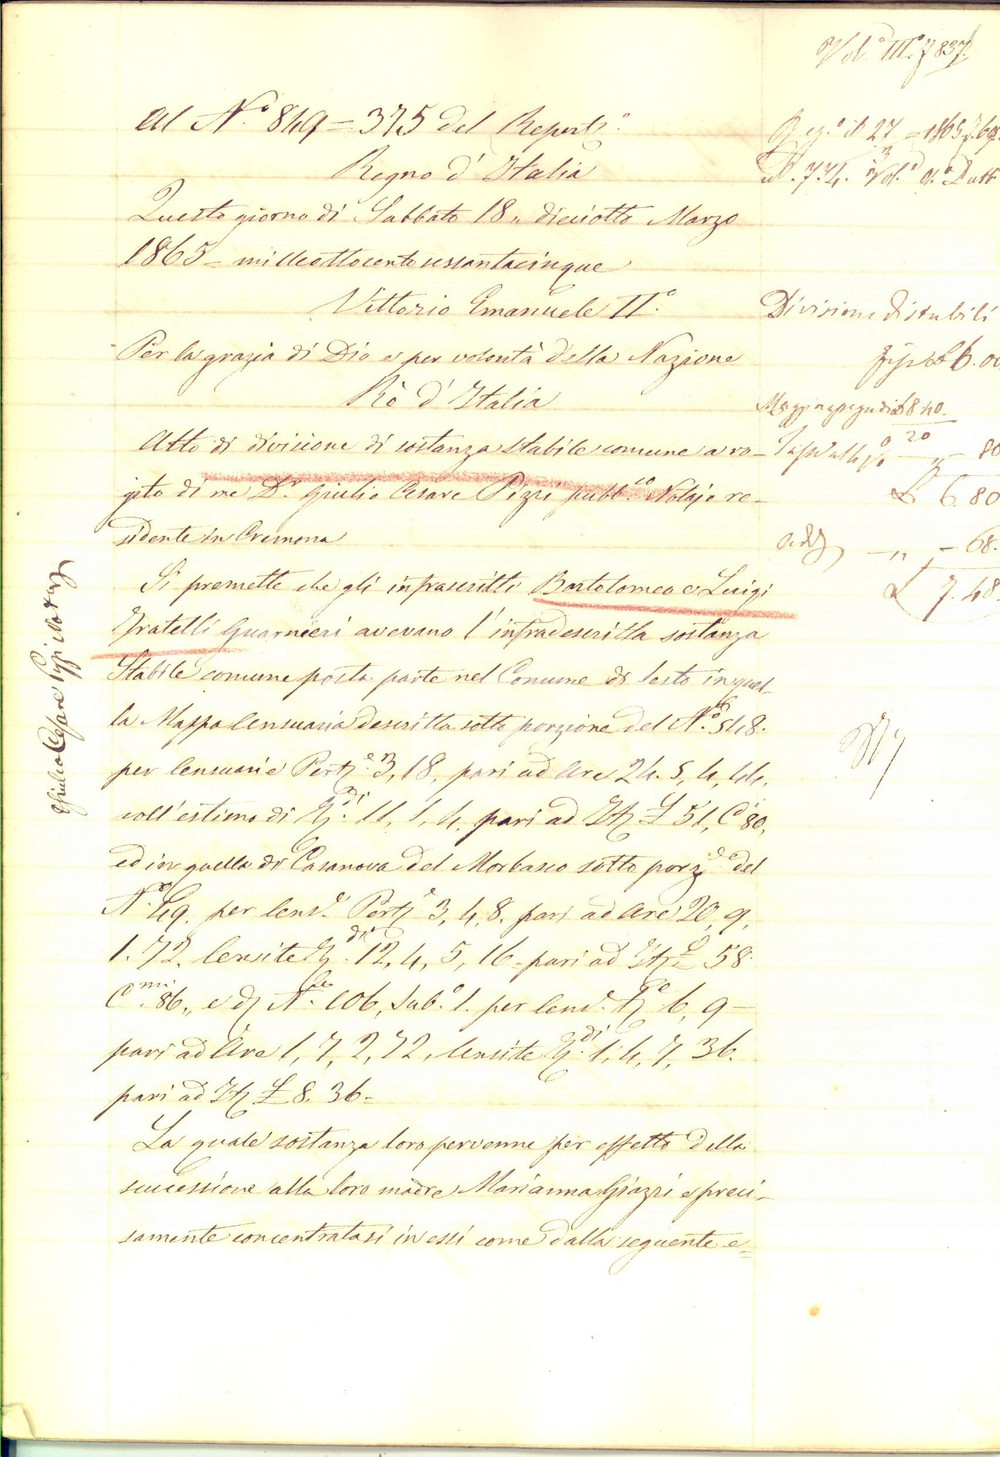 Vol.° III.° f 837
Al N.° 849 = 375 del Repert.°
Regno d' Italia
Questo giorno di Sabbato 18,, dieciotto Marzo
1865 = milleottocentosessantacinque
Vittorio Emanuele II.°
Per la grazia di Dio e per volontà della Nazione
Rè d' Italia
Atto di divisione di sostanza stabile comune a ro-
gito di me D.r Giulio Cesare Pizzi pubb.co Notajo re-
sidente in Cremona
Si premette che gli infrascritti Bortolomeo e Luigi
Fratelli Guarnieri avevano l' infradescritta sostanza
Stabile comune posta parte nel Comune di Sesto in quel-
la Mappa Censuaria descritta sotto porzione del N.° 548.
per Censuarie Pert.e 3, 18, pari ad Are 24. 5, 4, 44,
coll' estimo di 11, 1, 4, pari ad £ 51, C.i 80,
ed in quella di Casanova del Morbasco sotto porz.e del
N.° 49. per cens.e Pert.e 3, 4, 8. pari ad Are 20, 9,
1. 72. Censite 12, 4, 5, 16 = pari ad £ 58.
C.mi 86,, e N.° 106, Sub.° 1. per cens.e 6, 9 =
pari ad Are 1, 7, 2, 72, Censite 1, 4, 7, 36.
pari ad £ 8. 36 =
La quale sostanza loro pervenne per effetto della
successione alla loro madre Marianna Giazzi e preci-
samente concentratasi in essi come dalla seguente e=
Giulio Cesare Pizzi Notajo
27 = 1865
Vol.°
Divisione di stabili
6.00
840.
20
80
£ 6.80
68.
£ 7.48